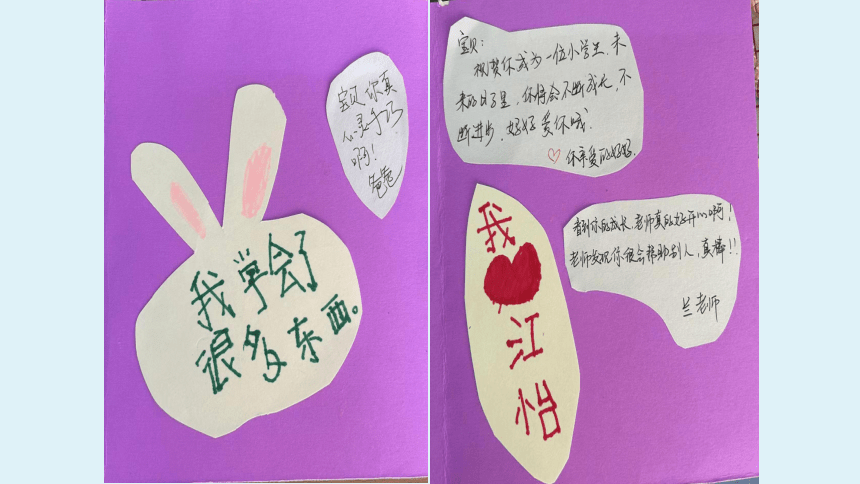 宝贝,你真
心灵手巧
啊!
爸爸
我学会了
很多东西。
宝贝:
祝贺你成为一位小学生,未
来的日子里,你将会不断成长,不
断进步,妈妈爱你哦.
♡ 你亲爱的妈妈.
我
❤
江
怡
看到你的成长,老师真的好开心啊!
老师发现你很会帮助别人,真棒!!
兰老师